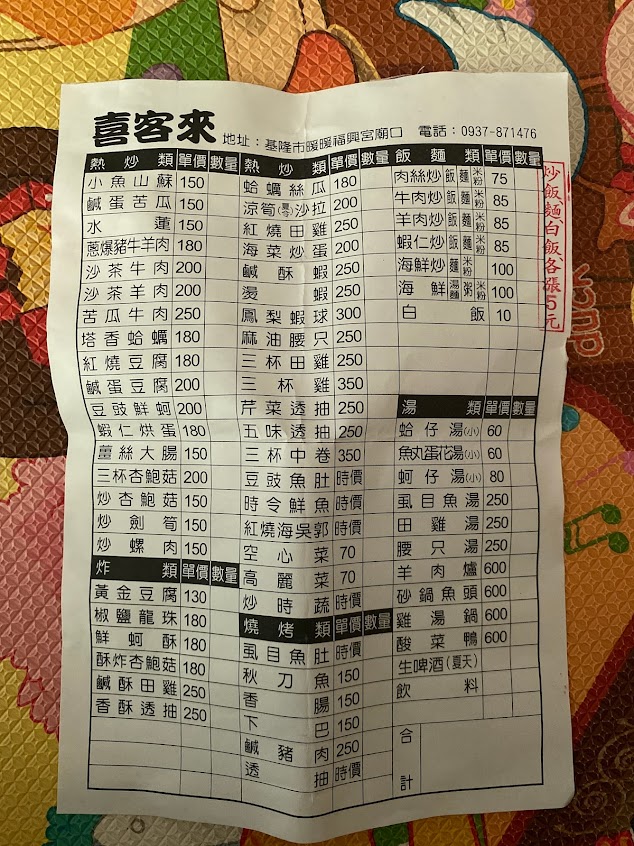 喜客來
地址：基隆市暖暖福興宮廟口 電話：0937-871476
熱炒類 單價 數量
小魚山蘇 150
鹹蛋苦瓜 150
水蓮 150
蔥爆豬牛羊肉 180
沙茶牛肉 200
沙茶羊肉 200
苦瓜牛肉 250
塔香蛤蠣 180
紅燒豆腐 180
鹹蛋豆腐 200
豆豉鮮蚵 200
蝦仁烘蛋 180
薑絲大腸 150
三杯杏鮑菇 200
炒杏鮑菇 150
炒劍筍 150
炒螺肉 150
炸類 單價 數量
黃金豆腐 130
椒鹽龍珠 180
鮮蚵酥 180
酥炸杏鮑菇 180
鹹酥田雞 250
香酥透抽 250
熱炒類 單價 數量
蛤蠣絲瓜 180
涼筍(夏季)沙拉 200
紅燒田雞 250
海菜炒蛋 200
鹹酥蝦 250
燙蝦 250
鳳梨蝦球 300
麻油腰只 250
三杯田雞 250
三杯雞 350
芹菜透抽 250
五味透抽 250
三杯中卷 350
豆豉魚肚 時價
時令鮮魚 時價
紅燒海吳郭 時價
空心菜 70
高麗菜 70
炒時蔬 時價
燒烤類 單價 數量
虱目魚肚 時價
秋刀魚 150
香腸 150
下巴 150
鹹豬肉 250
透抽 時價
飯麵類 單價 數量
肉絲炒飯麵米粉 75
牛肉炒飯麵米粉 85
羊肉炒飯麵米粉 85
蝦仁炒飯麵米粉 85
海鮮炒麵米粉 100
海鮮湯麵粥米粉 100
白飯 10
湯類 單價 數量
蛤仔湯(小) 60
魚丸蛋花湯(小) 60
蚵仔湯(小) 80
虱目魚湯 250
田雞湯 250
腰只湯 250
羊肉爐 600
砂鍋魚頭 600
雞湯鍋 600
酸菜鴨 600
生啤酒(夏天)
飲料
合計
炒飯、麵、白飯各漲5元
DUCK